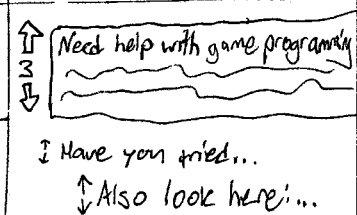 Need help with game programming
3
Have you tried...
Also look here:...